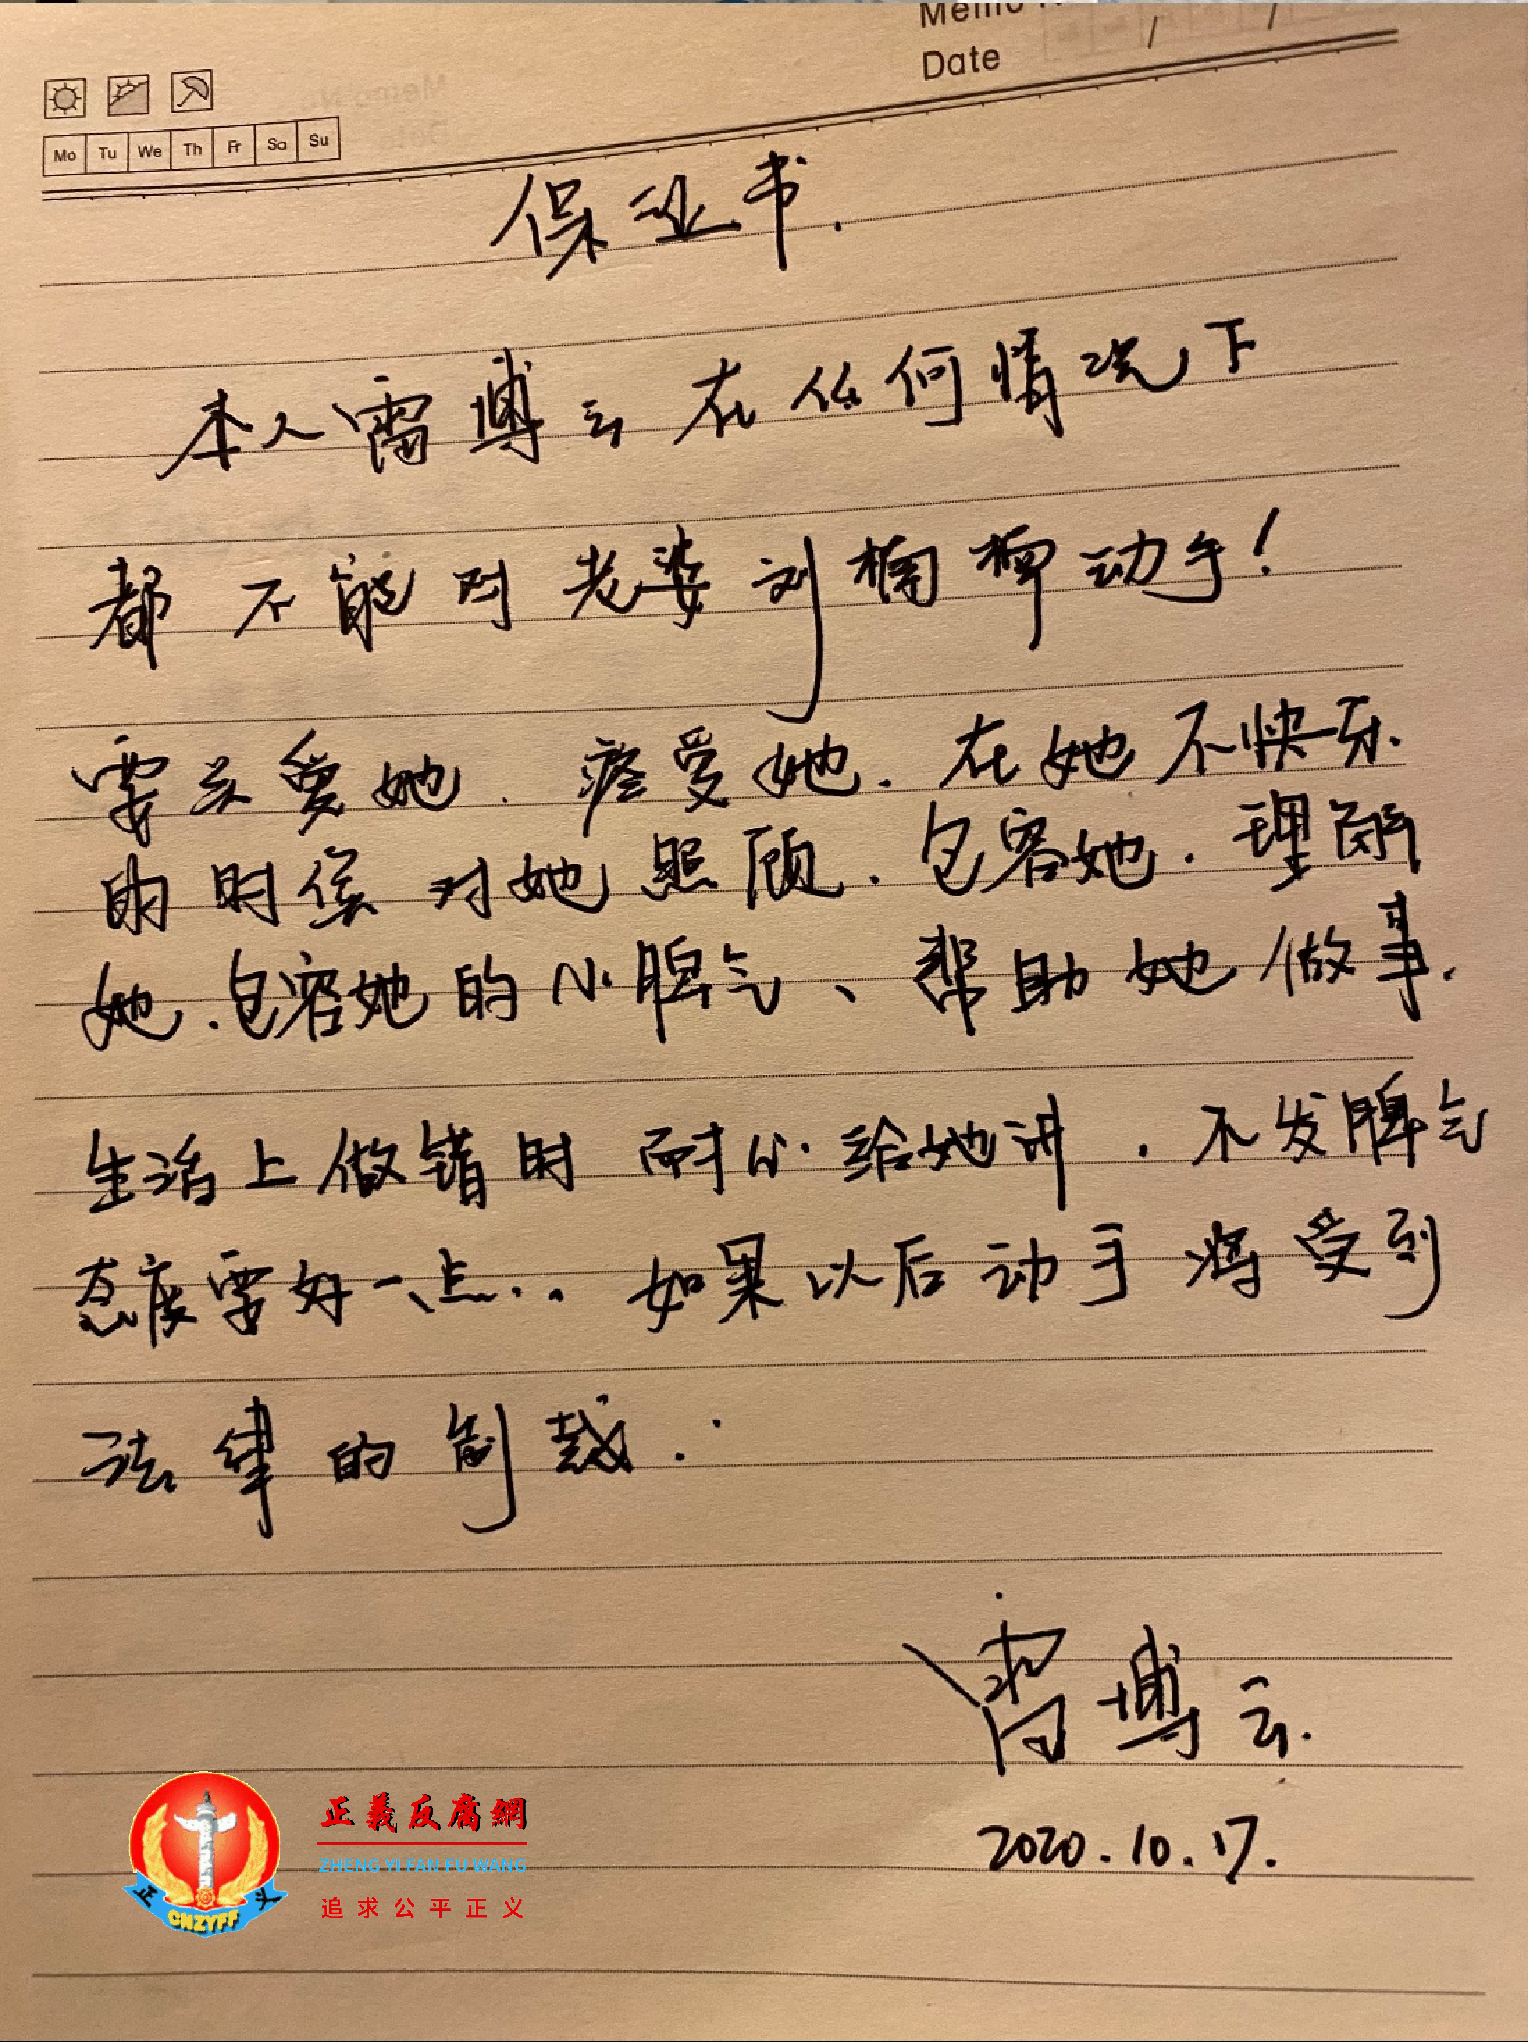 Memo
Date / /
Mo Tu We Th Fr Sa Su
保证书.
本人雷博云在任何情况下
都不能对老婆刘楠楠动手!
要关爱她.疼爱她.在她不快乐.
的时候对她照顾.包容她.理解
她.包容她的小脾气、帮助她做事.
生活上做错时耐心给她讲.不发脾气
态度要好一点...如果以后动手将受到
法律的制裁..
雷博云.
2020.10.17.
正義反腐網
ZHENG YI FAN FU WANG
追求公平正义
正 义
CNZYFF